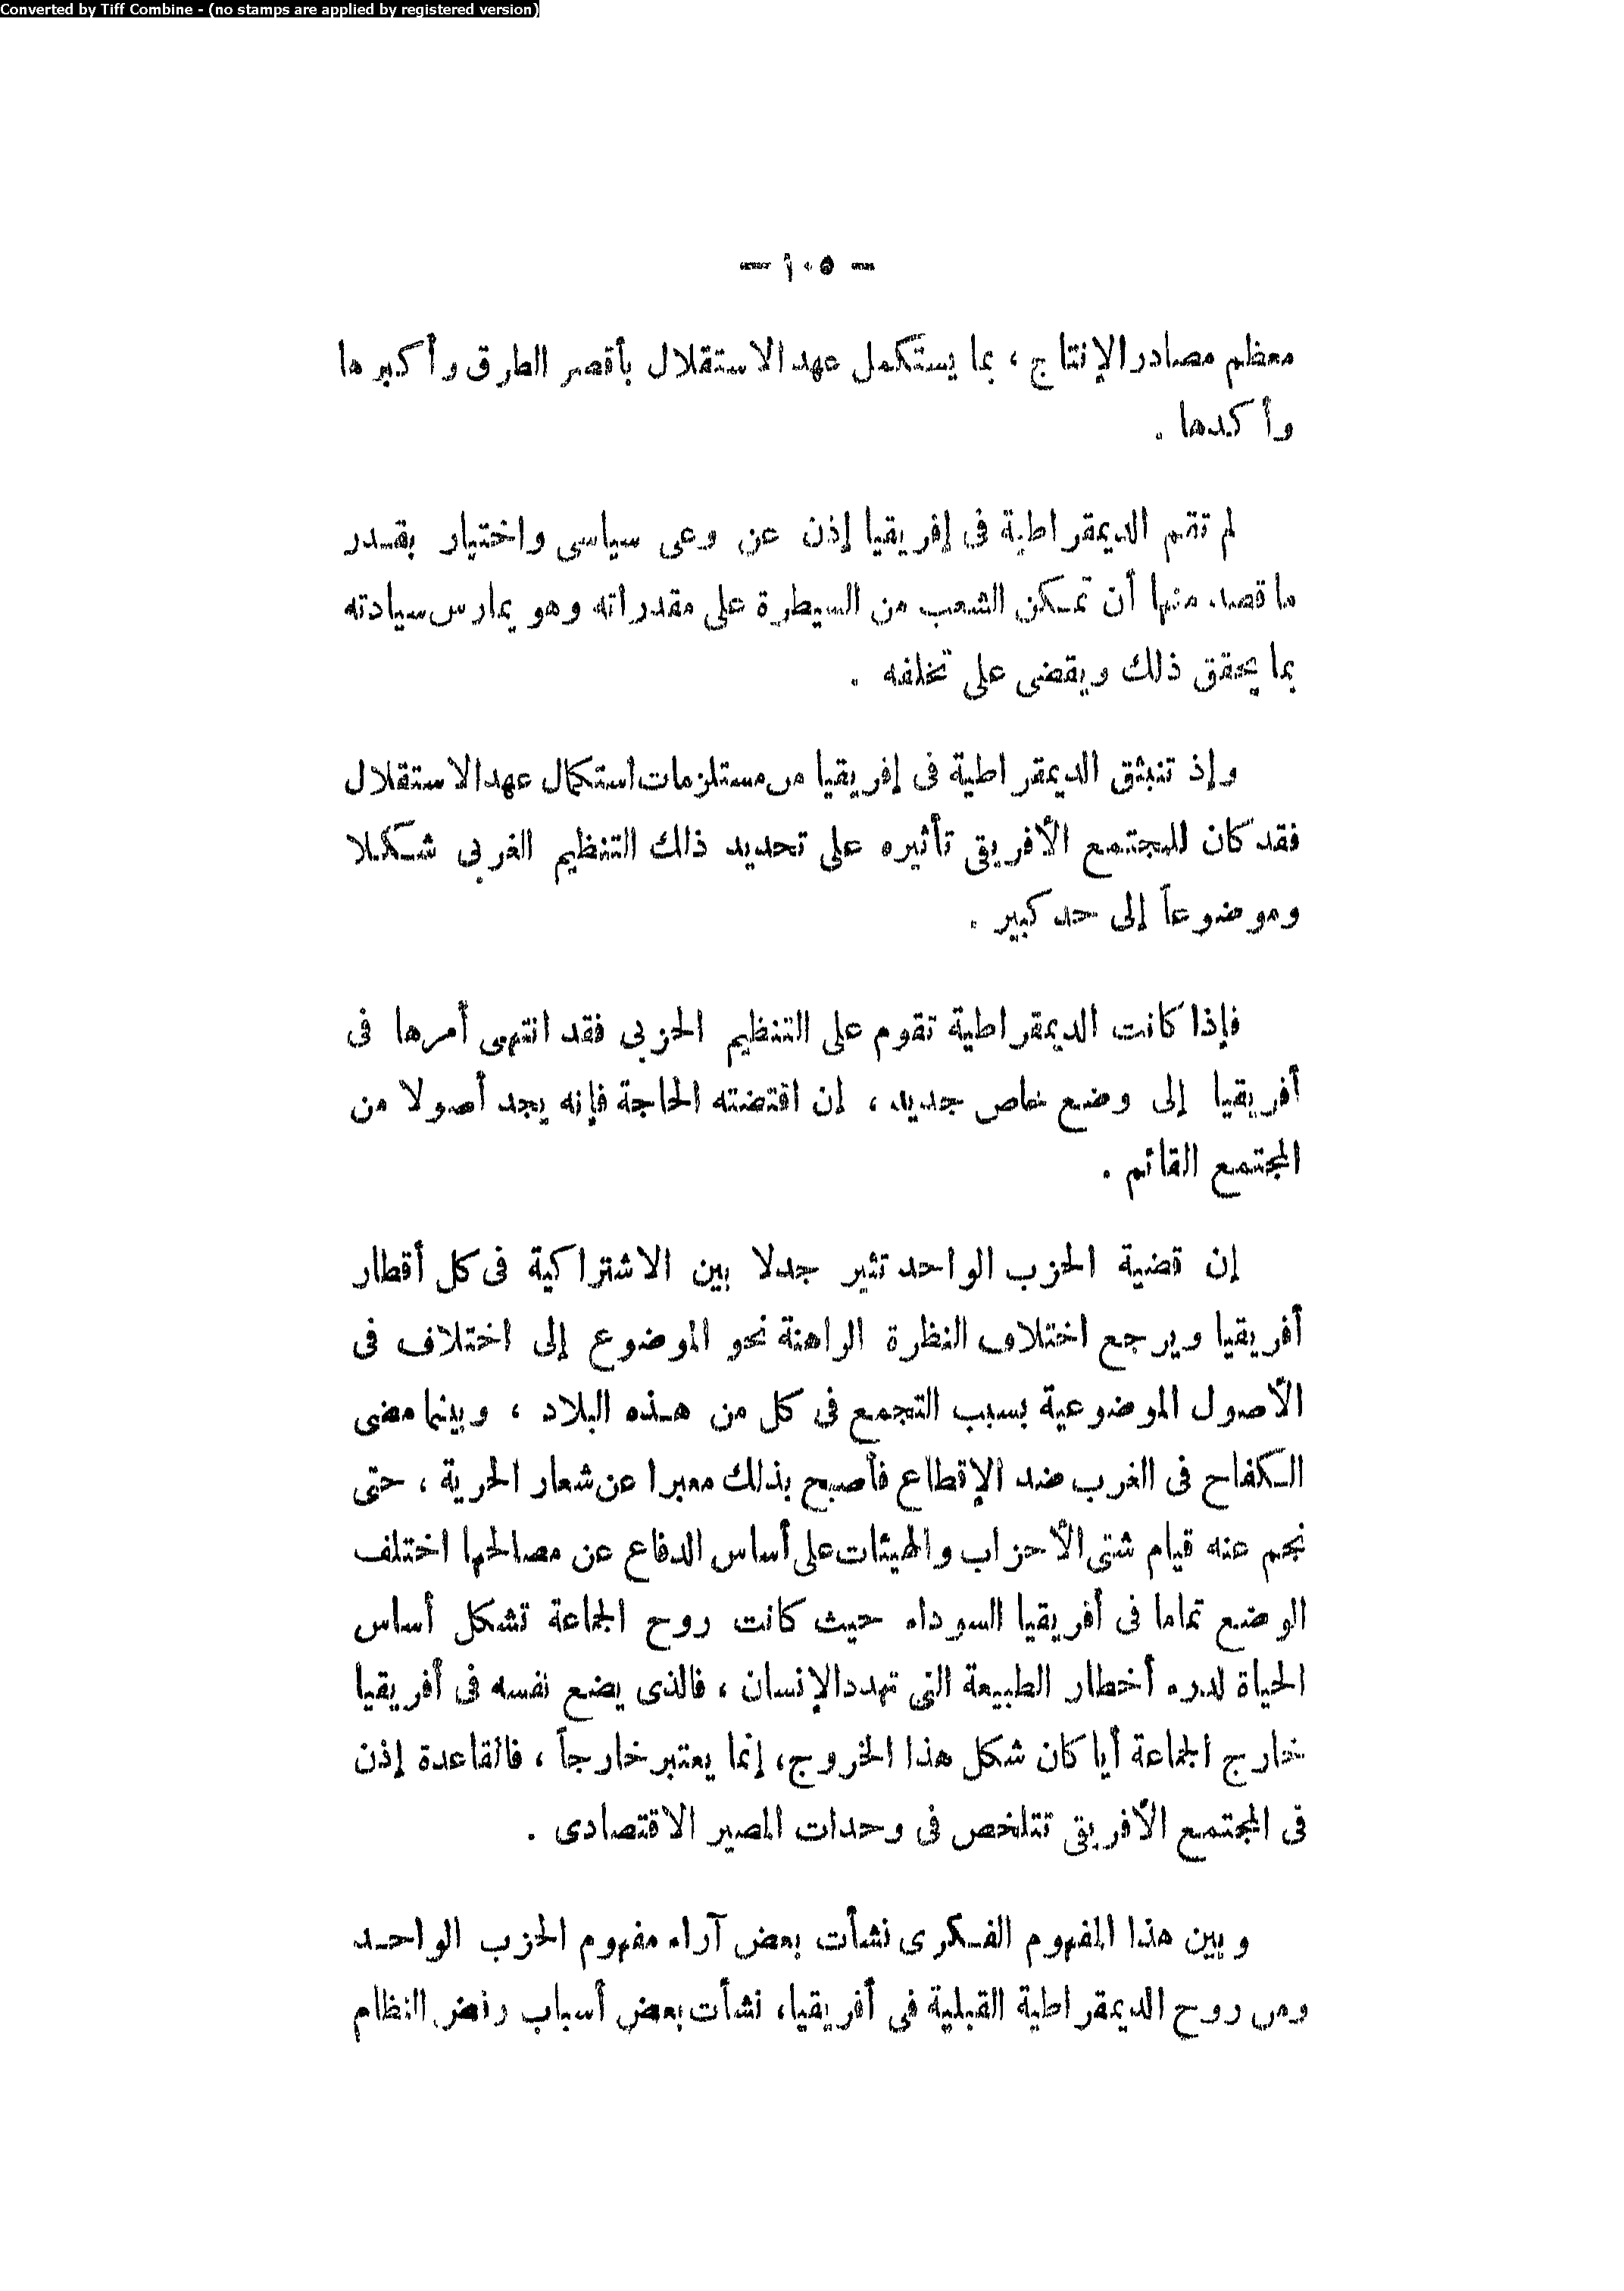 Converted by Tiff Combine - (no stamps are applied by registered version)
— ١٠٥ —
معظم مصادر الإنتاج ، بما يستكمل عهد الاستقلال بأقصر الطرق وأكبرها
وأكدها .
لم تقم الديمقراطية فى إفريقيا إذن عن وعى سياسى واختيار بقدر
ما قصد منها أن تمكن الشعب من السيطرة على مقدراته وهو يمارس سيادته
بما يحقق ذلك ويقضى على تخلفه .
وإذ تنبثق الديمقراطية فى إفريقيا من مستلزمات استكمال عهد الاستقلال
فقد كان للمجتمع الأفريقى تأثيره على تحديد ذلك التنظيم الغربى شكلا
وموضوعاً إلى حد كبير .
فإذا كانت الديمقراطية تقوم على التنظيم الحزبى فقد انتهى أمرها فى
أفريقيا إلى وضع خاص جديد ، إن اقتضته الحاجة فإنه يجد أصولا من
المجتمع القائم .
إن قضية الحزب الواحد تثير جدلا بين الاشتراكية فى كل أقطار
أفريقيا ويرجع اختلاف النظرة الراهنة نحو الموضوع إلى اختلاف فى
الأصول الموضوعية بسبب التجمع فى كل من هذه البلاد ، وبينما مضى
الكفاح فى الغرب ضد الإقطاع فأصبح بذلك معبرا عن شعار الحرية ، حتى
نجم عنه قيام شتى الأحزاب والهيئات على أساس الدفاع عن مصالحها اختلف
الوضع تماما فى أفريقيا السوداء حيث كانت روح الجماعة تشكل أساس
الحياة لدرء أخطار الطبيعة التى تهدد الإنسان ، فالذى يضع نفسه فى أفريقيا
خارج الجماعة أيا كان شكل هذا الخروج، إنما يعتبر خارجاً ، فالقاعدة إذن
فى المجتمع الأفريقى تتلخص فى وحدات المصير الاقتصادى .
وبين هذا المفهوم الفكرى نشأت بعض آراء مفهوم الحزب الواحد
ومن روح الديمقراطية القبلية فى أفريقيا، نشأت بعض أسباب رفض النظام